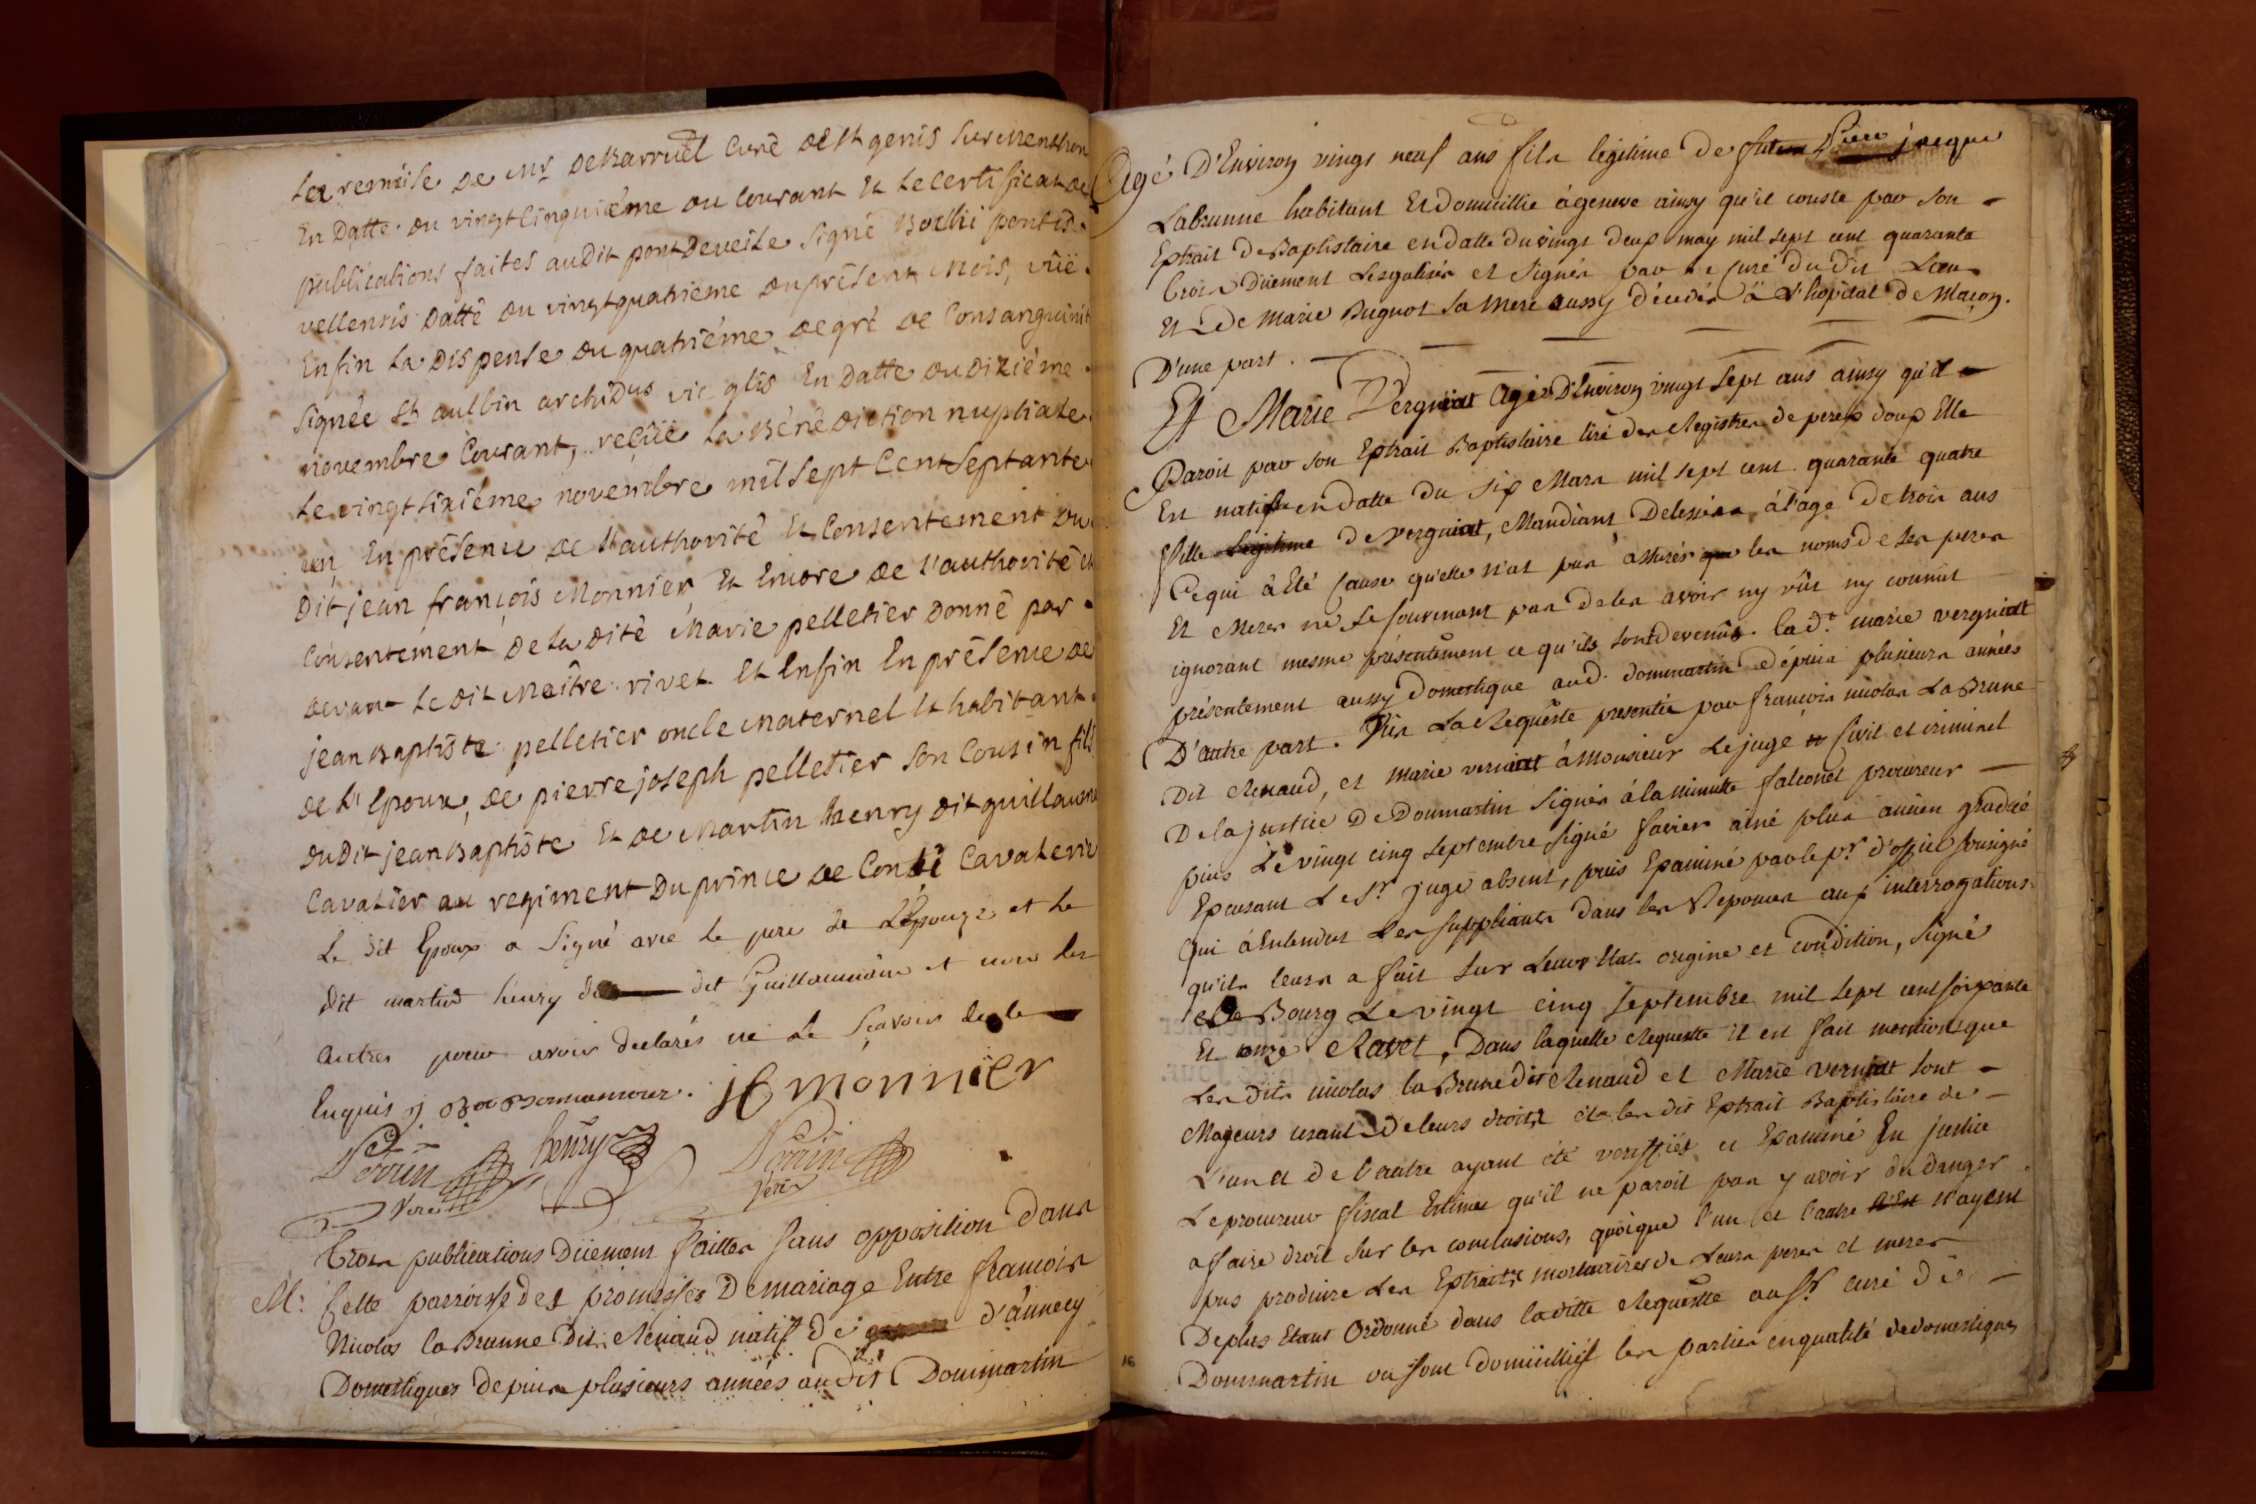 La remise de Mr. deBarruel Curé de St genis sur Menthon
En Datte du vingt cinquiéme du Courant Et Le Certificat de
publications faites audit pont de veile signé Bochi pontis
vellensis Datté du vingt quatriéme du présent Mois, vüe
Enfin La Dispense du quatriéme degré de Consanguinit
signée St aulbin archidus vic glis En Datte du dixiéme
novembre Courant, reçüe La Bénédiction nuptiale
Le vingt sixiéme novembre mil sept Cent septante
un En présence de L'authorité Et Consentement du
Dit jean françois Monnier Et Encore de l'authorité Et
Consentement de La dite Marie pelletier Donné par
devant Le dit Maître rivet Et Enfin En présence de
jean Baptiste pelletier oncle Maternel Et habitant
de L'Epoux, de pierre joseph pelletier son Cousin fils
dudit jean Baptiste Et de Martin henry dit guillaume
Cavalier au regiment Du prince de Condé Cavalerie
Le dit Epoux a Signé avec le pere de L'Epouze et le
dit martin henry dit Guillaume et non les
autres pour avoir declarés ne Le sçavoir de ce
Enquis jf monnier
Perrin henry Perrin
Vere
Trois publications Düement faittes sans opposition dans
M: Cette parroisse des promesses De mariage Entre francois
Nicolas la Brunne Dit Renaud natif de d'annecy
Domestiques depuis plusieurs années au dit Dommartin
16
Agé D'Environ vingt neuf ans fils legitime de Pierre jacque
LaBrunne habitant Et domicillié à geneve ainsy qu'il conste par son
Extrait de Baptistaire en datte du vingt deux may mil sept cent quarante
trois Düement Legalisés et signés par le Curé du dit Lieu
Et De Marie Buguot sa Mere aussy décedée à L'hopital de Macon.
D'une part.
Et Marie Vergniat Agé D'Environ vingt sept ans ainsy qu'il
Paroit par son Extrait Baptistaire tiré des Registres de peres doup Elle
Est natif en datte du six Mars mil sept cent quarante quatre
fille Legitime de vergniat, Mandiant Delessée à l'age de trois ans
Ce qui à Eté Cause qu'elle n'at pas assurés que les noms de ses peres
Et Meres ne Se souvenant pas deles avoir ny vüs ny connut
ignorant mesme présentement ce qu'ils sont devenûs. lad.e marie vergniatt
présentement aussy domestique aud. dommartin depuis plusieurs années
D'autre part. Vüe La Requeste presentée par francois nicolas La Brune
Dit Renaud, et Marie verniat à Monsieur Le juge Civil et criminel
De la justice De Dommartin Signés à la minutte falconet procureur
puis Le vingt cinq septembre signé favier ainé plus ancien gradué
Epousant Le Sr juge absent, puis Examiné par le pr. d'office soussigné
Qui à Entendus Les suppliants dans les Reponces aux interrogations
qu'ils leurs a fait sur Leurs Etat origine et condition, Signé
à Bourg Le vingt cinq septembre mil sept cent soixante
Et onze Ravet, Dans laquelle Requeste il est fait mention que
Les dits nicolas la Brune dit Renaud et Marie verniat sont
Majeurs usant de leurs droits et les dit Extrait Baptistaire de
L'un et de l'autre ayant été veriffiés et Examiné En justice
Le procureur fiscal Estime qu'il ne paroit pas y avoir du danger
a faire droit sur les conclusions, quoique l'un et l'autre n'ayent
pus produire Les Extraits mortuaires de Leurs peres et meres
Deplus Etant Ordonné dans laditte Requeste au Sr. curé de
Dommartin ou sont domicilliés les parties en qualité de domestiques